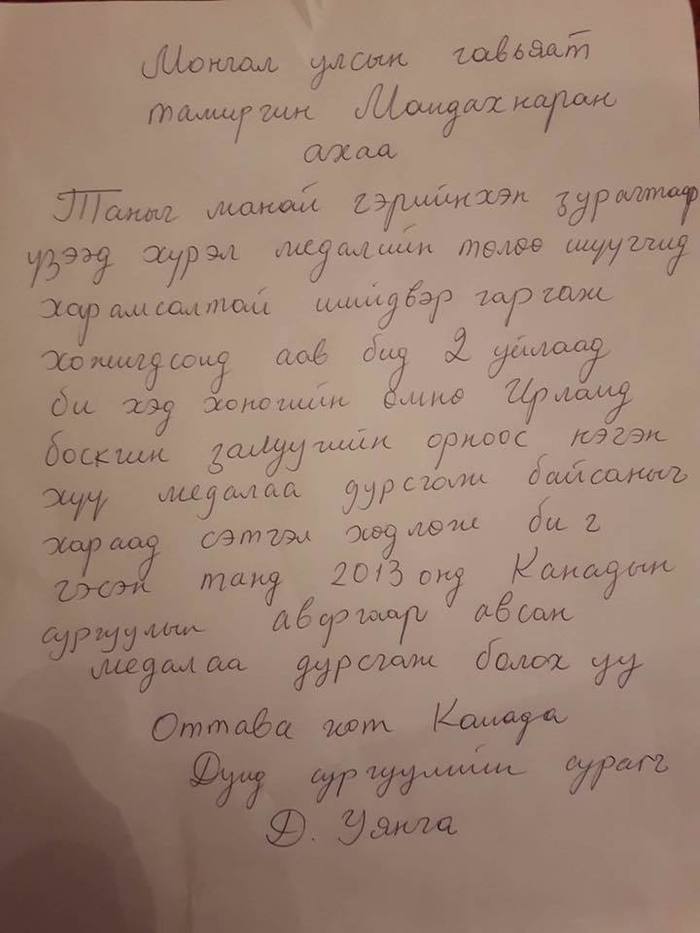 Монгал улсын гавьяат
тамиргин Мандахнаран
ахаа
Таныг манай гэрийнхэн зурагтаар
үзээд хүрэл медалийн төлөө шүүгчид
харамсалтай шийдвэр гаргаж
хожигдсонд аав бид 2 уйлаад
би хэд хоногийн өмнө Ирланд
боскгин залуугийн орноос нэгэн
хүү медалаа дурсгаж байсаныг
хараад сэтгэл хөдлөж би г
гэсэн танд 2013 онд Канадын
сургуулын аваргаар авсан
медалаа дурсгаж болох уу
Оттава хот Канада
Дунд сургуулийн сурагч
Д. Уянга